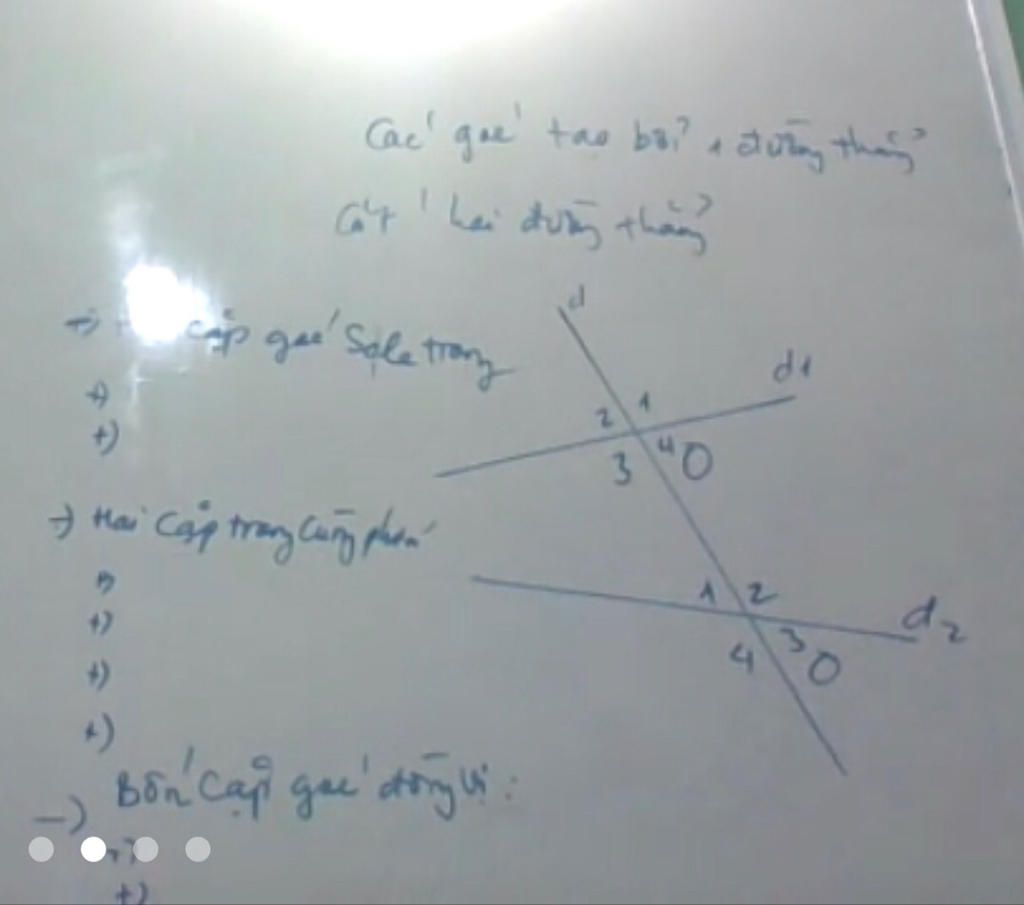 Các góc tạo bởi 1 đường thẳng
Cắt hai đường thẳng
cặp góc Sole trong
+)
+)
d
d1
2 1
3 4 O
-) Hai Cặp trong Cùng phía
+)
+)
+)
+)
1 2
d2
4 3 O
-) Bốn Cặp góc đồng vị :
+)
+)